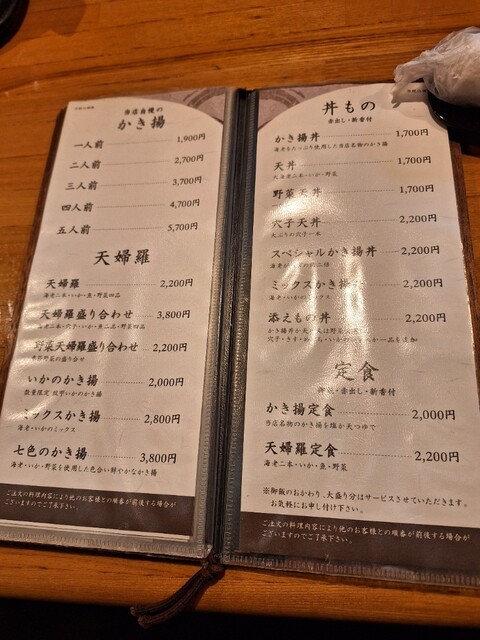 当店自慢の
かき揚
一人前 1,900円
二人前 2,700円
三人前 3,700円
四人前 4,700円
五人前 5,700円
天婦羅
天婦羅 2,200円
海老二本・いか・魚・野菜四品
天婦羅盛り合わせ 3,800円
海老二本・穴子・いか・魚二品・野菜四品
野菜天婦羅盛り合わせ 2,200円
野菜の盛り合せ
いかのかき揚 2,000円
数量限定
ミックスかき揚 2,800円
海老・いかのミックス
七色のかき揚 3,800円
海老・いか・野菜を使用した色合い鮮やかなかき揚
ご注文の料理内容により他のお客様との順番が前後する場合が
ございますのでご了承下さい。
丼もの
赤出し・新香付
かき揚丼 1,700円
海老をたっぷり使用した当店名物のかき揚
天丼 1,700円
海老二本・いか・野菜
野菜天丼 1,700円
穴子天丼 2,200円
天ぷりの穴子一本
スペシャルかき揚丼 2,200円
ミックスかき揚丼 2,200円
海老・いかのミックス
添えもの丼 2,200円
かき揚丼か天丼
穴子・きす・いか 一品を追加
定食
御飯・赤出し・新香付
かき揚定食 2,000円
当店名物のかき揚を塩か天つゆで
天婦羅定食 2,200円
海老二本・いか・魚・野菜
※御飯のおかわり、大盛り分はサービスさせていただきます。
お気軽にお申し付け下さい。
ご注文の料理内容により他のお客様との順番が前後する場合が
ございますのでご了承下さい。